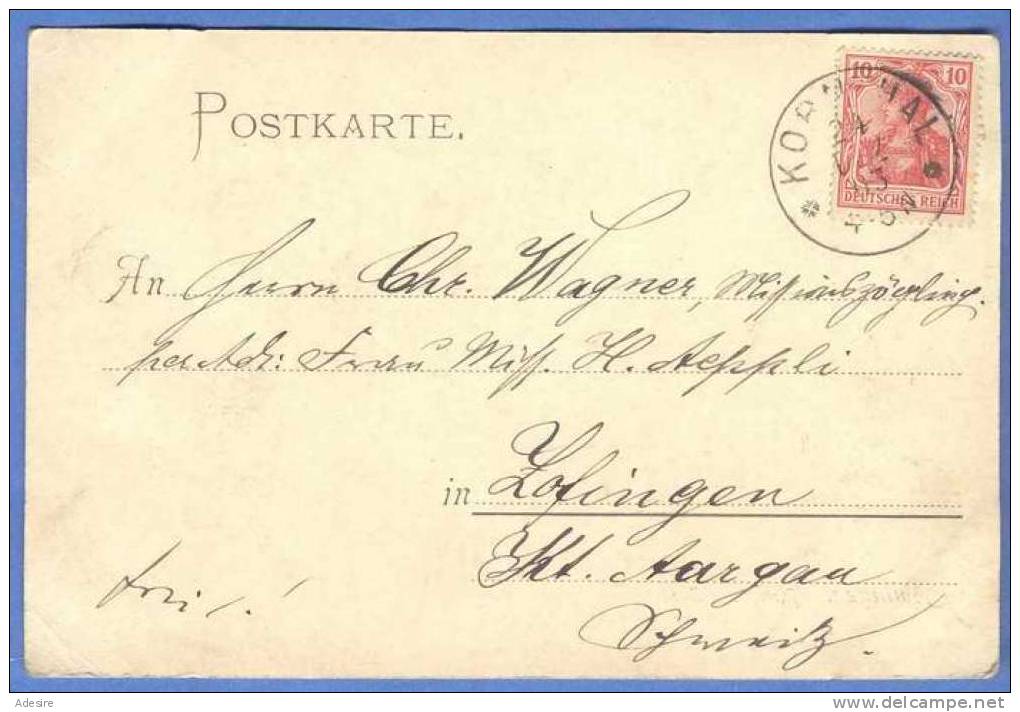 POSTKARTE.
10 10
DEUTSCHES REICH
KORNTHAL
An Herrn Chr. Wagner, Missionszögling.
per Adr: Frau Miss. H. Aeppli
in Zofingen
Kt. Aargau
Schweiz.
frei
Adesire
www.delcampe.net